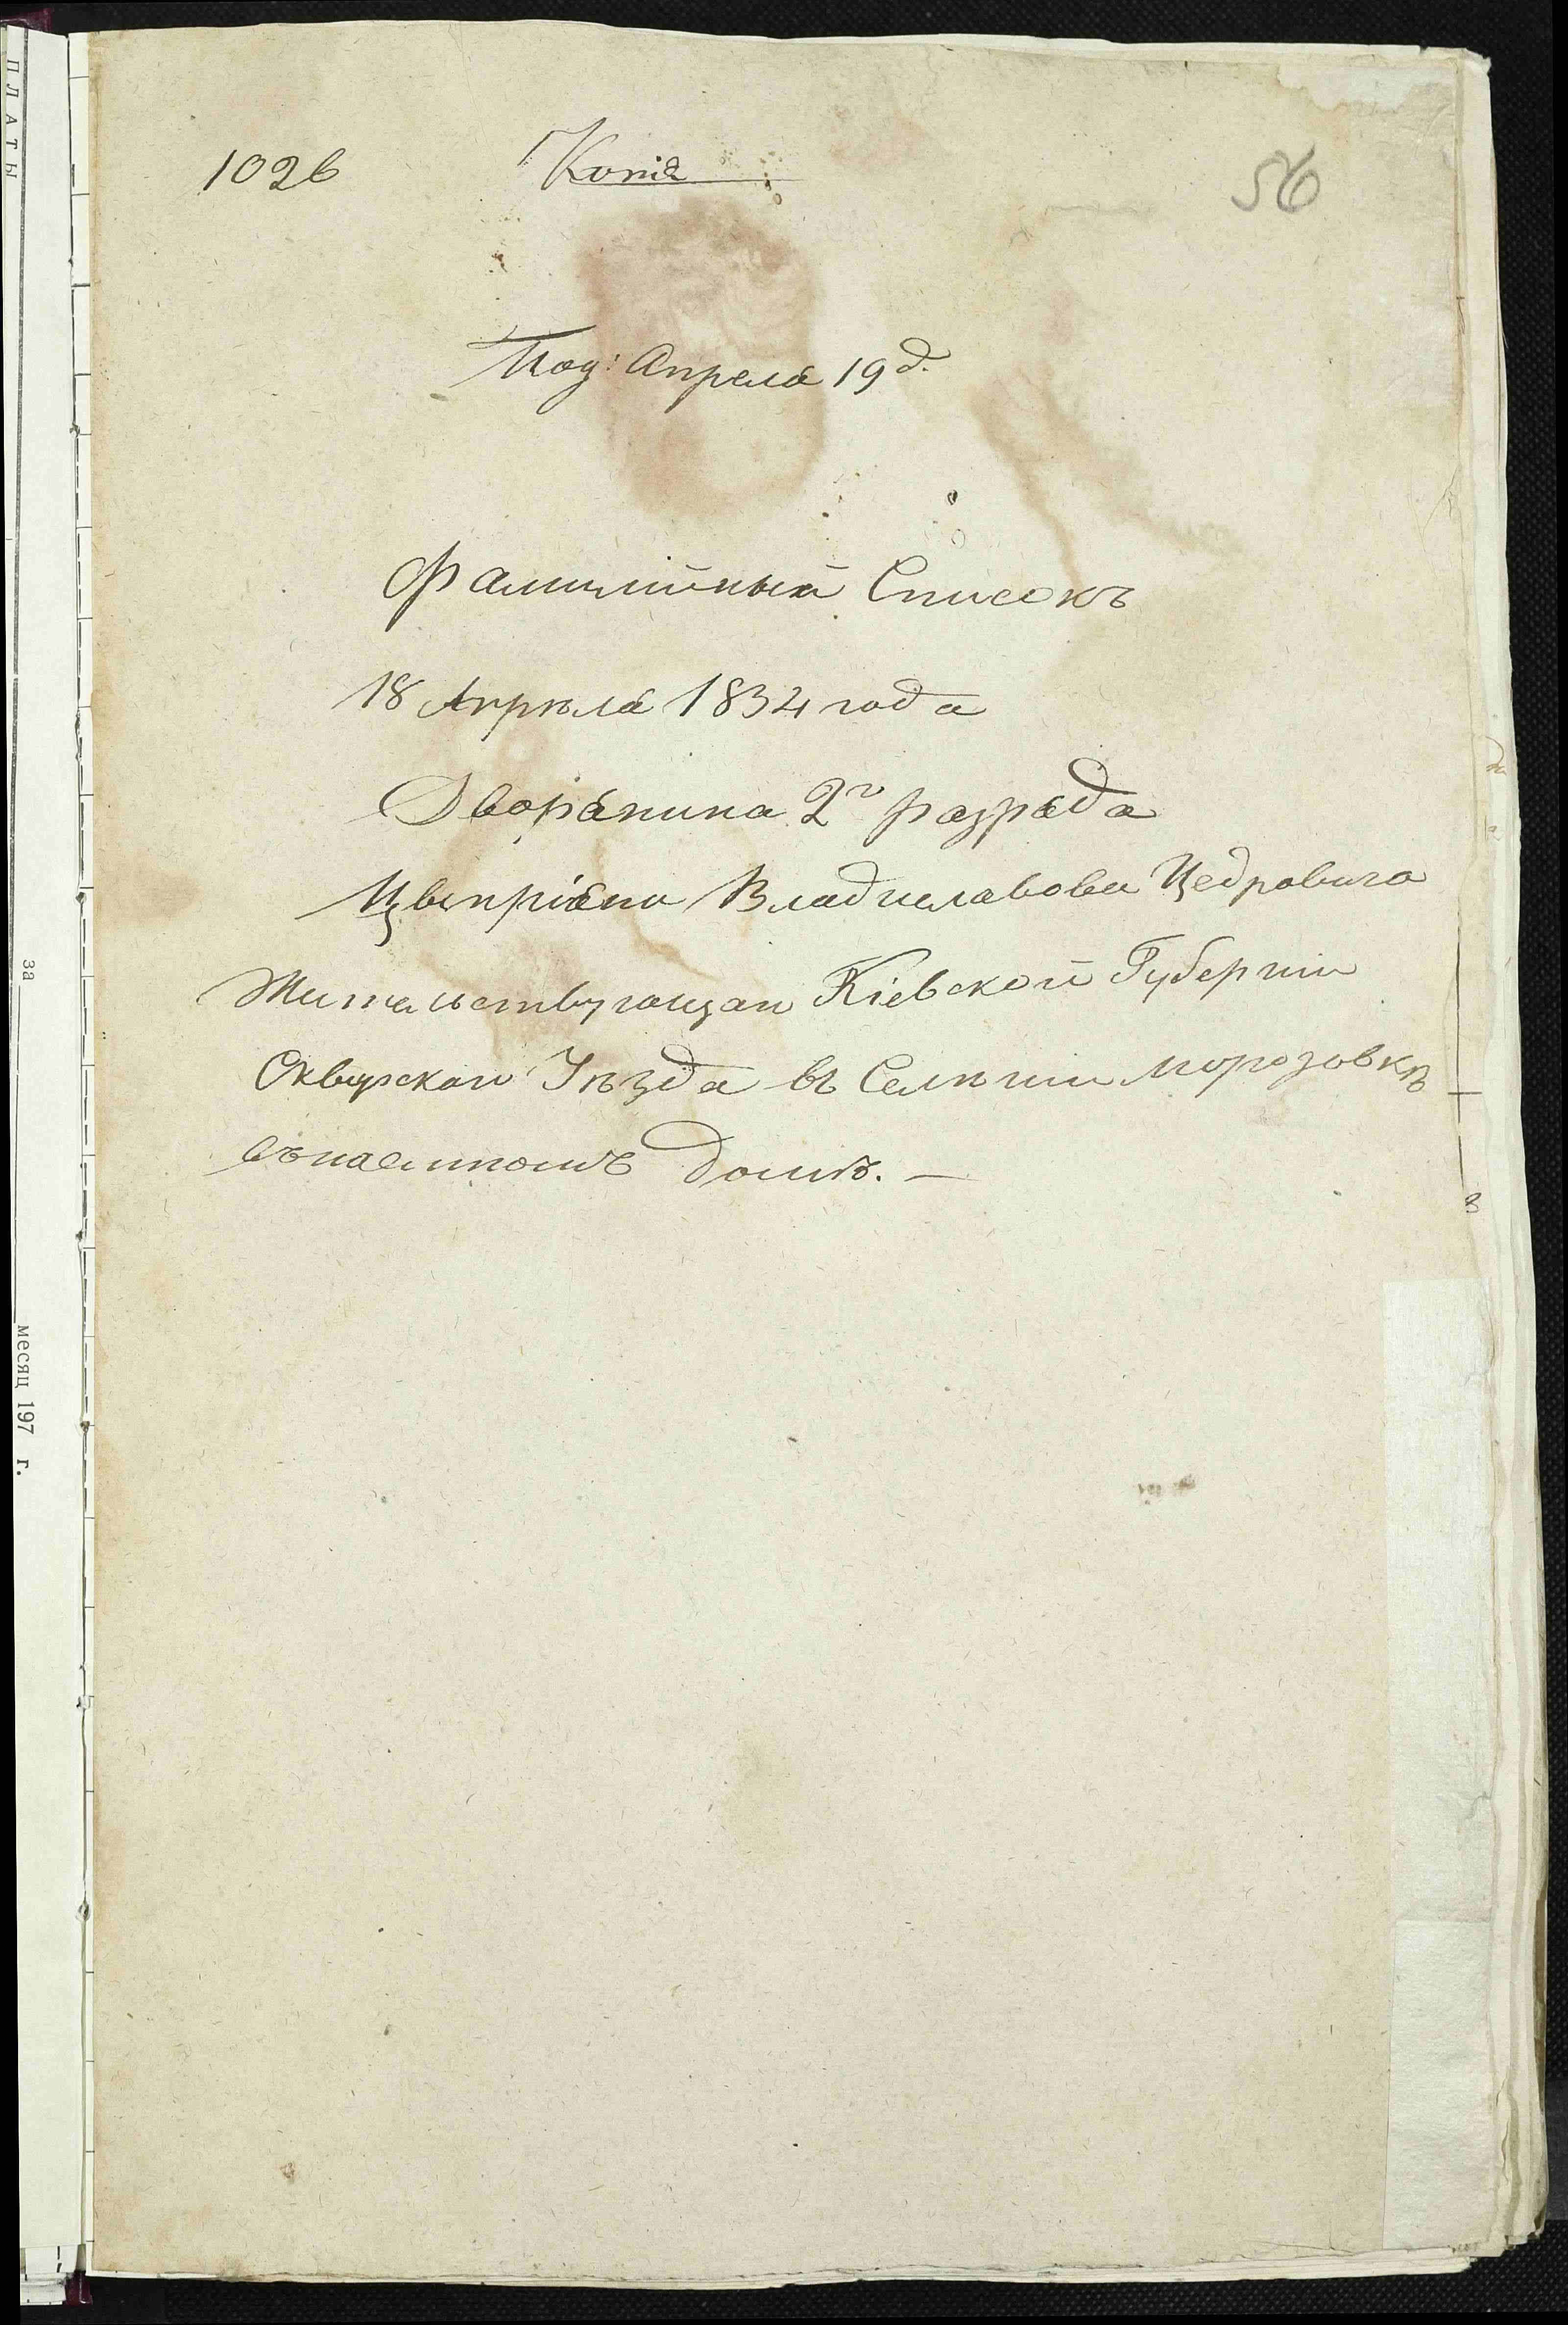 1026 Копія 56
Под: Апреля 19 д.
Фамилійный Списокъ
18 Апрѣля 1834 года
Дворянина 2го разряда
Цыпріяна Владиславова Цедровича
Жительствующаи Кіевской Губерніи
Сквирскаи Уѣзда въ Селѣніи Морозовкѣ
въ наемномъ домѣ. —
ПЛАТЫ
за
месяц 197 г.